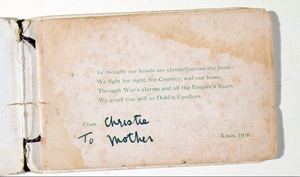 In thought our hands are clasped across the foam:
We fight for right, for Country, and our home,
Through War's alarms and all the Empire's Tears
We greet you still as Dublin Fusiliers.
From Christie
To Mother
Xmas, 1916